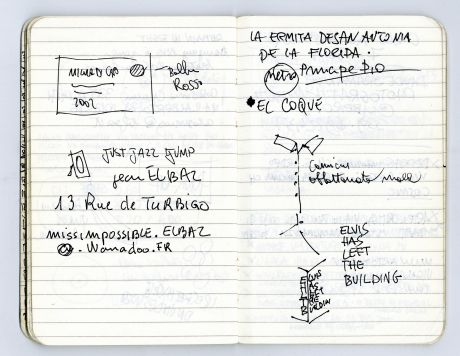 2002
Rosso
JUST JAZZ JUMP
jean ELBAZ
13 Rue de TURBIGO
missimpossible.ELBAZ
@.Wanadoo.FR
LA ERMITA DE SAN ANTONIA
DE LA FLORIDA.
Metro Principe PIO
EL COQUE
ELVIS
HAS
LEFT
THE
BUILDING
ELVIS
HAS
LEFT
THE
BUILDING